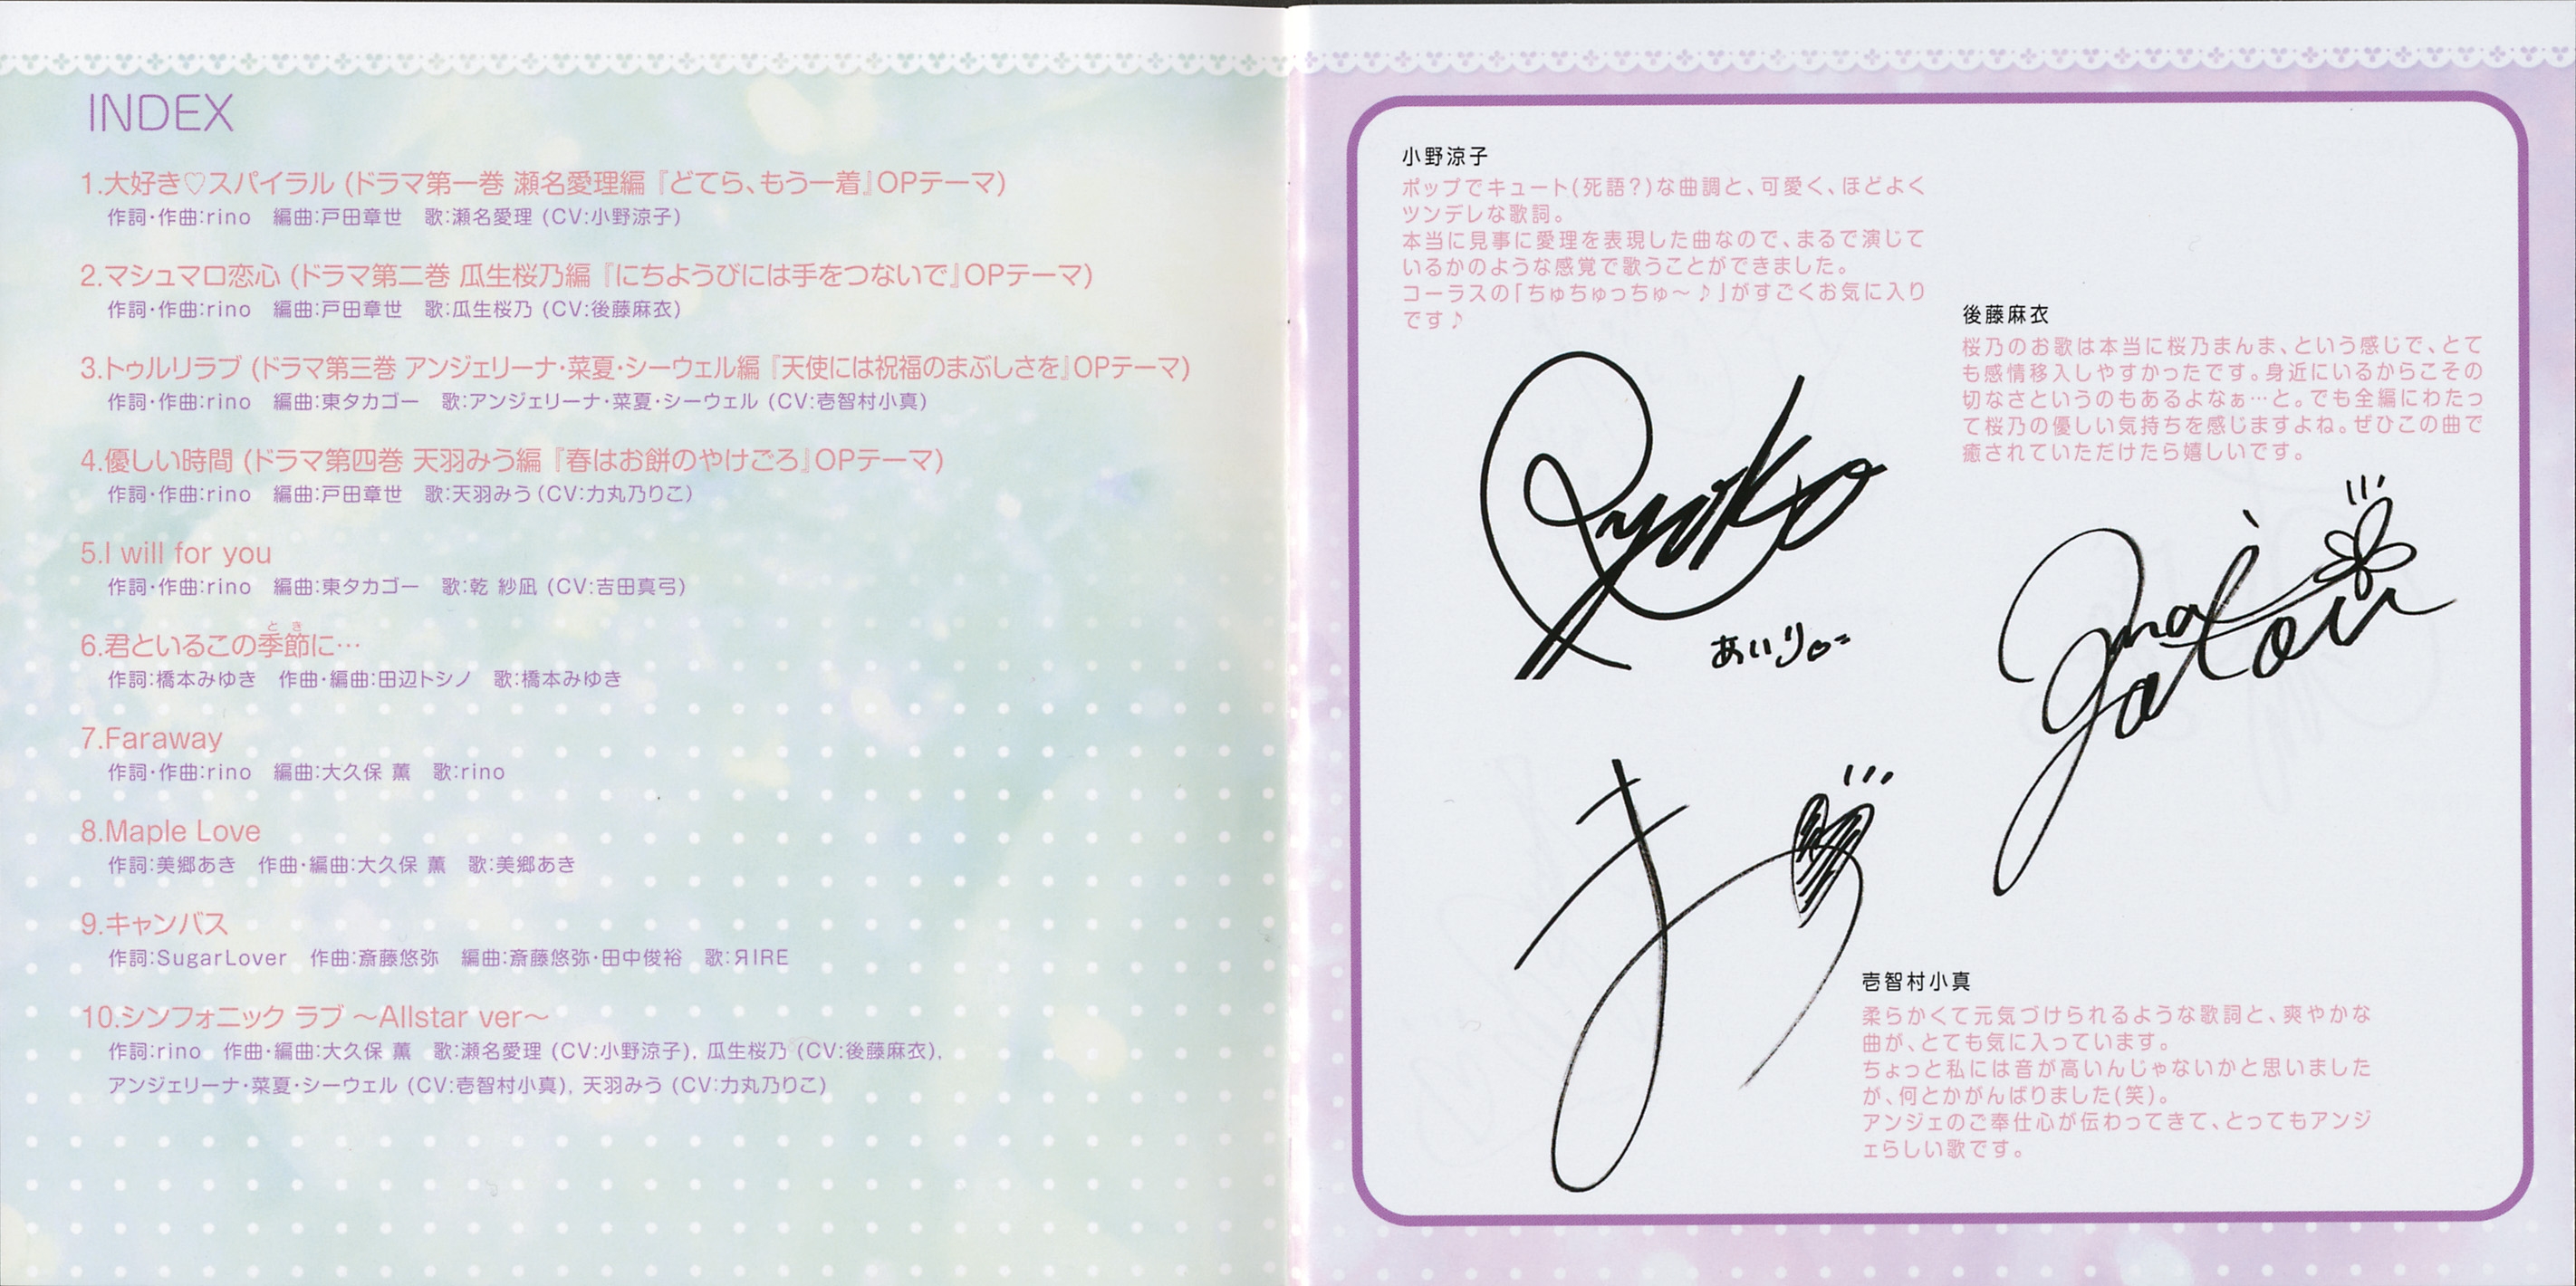 INDEX
1.大好き♡スパイラル (ドラマ第一巻 瀬名愛理編『どてら、もう一着』OPテーマ)
作詞・作曲:rino 編曲:戸田章世 歌:瀬名愛理 (CV:小野涼子)
2.マシュマロ恋心 (ドラマ第二巻 瓜生桜乃編『にちようびには手をつないで』OPテーマ)
作詞・作曲:rino 編曲:戸田章世 歌:瓜生桜乃 (CV:後藤麻衣)
3.トゥルリラブ (ドラマ第三巻 アンジェリーナ・菜夏・シーウェル編『天使には祝福のまぶしさを』OPテーマ)
作詞・作曲:rino 編曲:東タカゴー 歌:アンジェリーナ・菜夏・シーウェル (CV:壱智村小真)
4.優しい時間 (ドラマ第四巻 天羽みう編『春はお餅のやけごろ』OPテーマ)
作詞・作曲:rino 編曲:戸田章世 歌:天羽みう(CV:力丸乃りこ)
5.I will for you
作詞・作曲:rino 編曲:東タカゴー 歌:乾 紗凪 (CV:吉田真弓)
とき
6.君といるこの季節に…
作詞:橋本みゆき 作曲・編曲:田辺トシノ 歌:橋本みゆき
7.Faraway
作詞・作曲:rino 編曲:大久保 薫 歌:rino
8.Maple Love
作詞:美郷あき 作曲・編曲:大久保 薫 歌:美郷あき
9.キャンバス
作詞:SugarLover 作曲:斎藤悠弥 編曲:斎藤悠弥・田中俊裕 歌:ЯIRE
10.シンフォニック ラブ ～Allstar ver～
作詞:rino 作曲・編曲:大久保 薫 歌:瀬名愛理 (CV:小野涼子), 瓜生桜乃 (CV:後藤麻衣),
アンジェリーナ・菜夏・シーウェル (CV:壱智村小真), 天羽みう (CV:力丸乃りこ)
小野涼子
ポップでキュート(死語?)な曲調と、可愛く、ほどよく
ツンデレな歌詞。
本当に見事に愛理を表現した曲なので、まるで演じて
いるかのような感覚で歌うことができました。
コーラスの「ちゅちゅっちゅ～♪」がすごくお気に入り
です♪
Ryoko
あいりぃー
後藤麻衣
桜乃のお歌は本当に桜乃まんま、という感じで、とて
も感情移入しやすかったです。身近にいるからこその
切なさというのもあるよなぁ…と。でも全編にわたっ
て桜乃の優しい気持ちを感じますよね。ぜひこの曲で
癒されていただけたら嬉しいです。
mai
Gotou
壱智村小真
柔らかくて元気づけられるような歌詞と、爽やかな
曲が、とても気に入っています。
ちょっと私には音が高いんじゃないかと思いました
が、何とかがんばりました(笑)。
アンジェのご奉仕心が伝わってきて、とってもアンジ
ェらしい歌です。